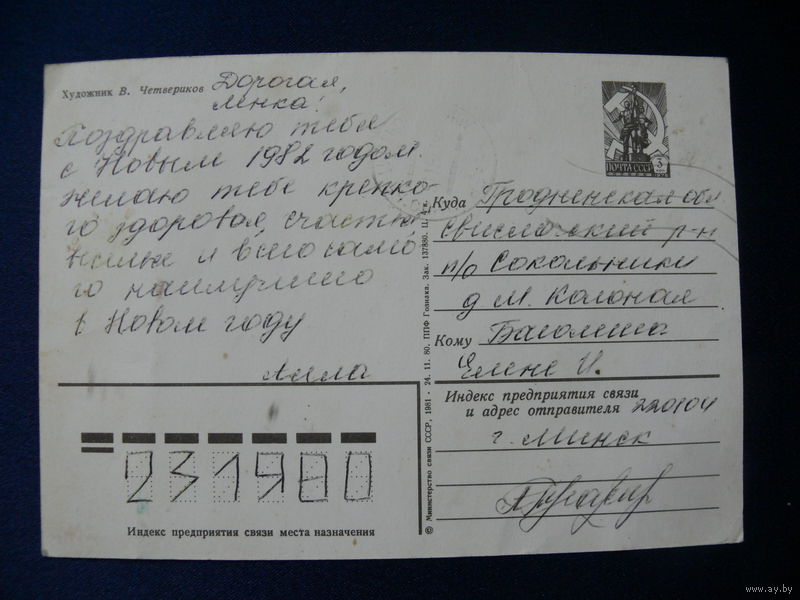 Художник В. Четвериков
Дорогая,
Ленка!
Поздравляю тебя
с Новым 1982 годом.
желаю тебе крепко-
го здоровья, счастья
и всего само-
го наилучшего
в Новом году
Алла
ПОЧТА СССР 3
Куда Гродненская обл
Свислочский р-н
п/о Сокольники
д М. Колоная
Кому
Елене И.
Индекс предприятия связи
и адрес отправителя 220104
г. Минск
231900
Индекс предприятия связи места назначения
© Министерство связи СССР, 1981 - 24. 11. 80. ППФ Гознака. Зак. 137880. Ц. 4 к.
www.ay.by